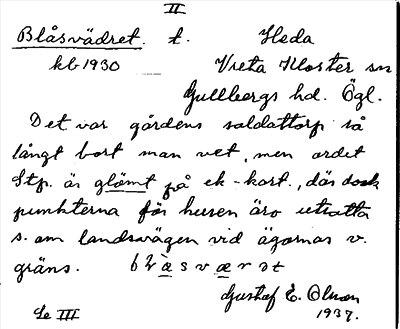 II
Blåsvädret. t. Heda
kb 1930 Vreta Kloster sn
Gullbergs hd. Ögl.
Det var gårdens soldattorp så
långt bort man vet, men ordet
Stp. är glömt på ek-kart., där dock
punkterna för husen äro utsatta
s. om landsvägen vid ägornas v.
gräns. blàsværət
Gustaf E. Olsson
Se III 1937.